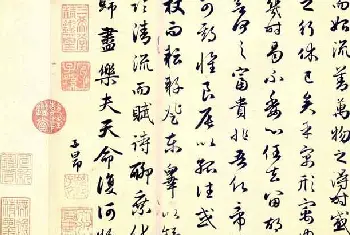 而始流善萬物之得時感
之行休已矣乎寓形宇內
幾時曷不委心任去留胡
何之富貴非吾願帝
可期懷良辰以孤往或
杖而耘耔登東皋以舒
臨清流而賦詩聊乘化
歸盡樂夫天命復何疑
子昂